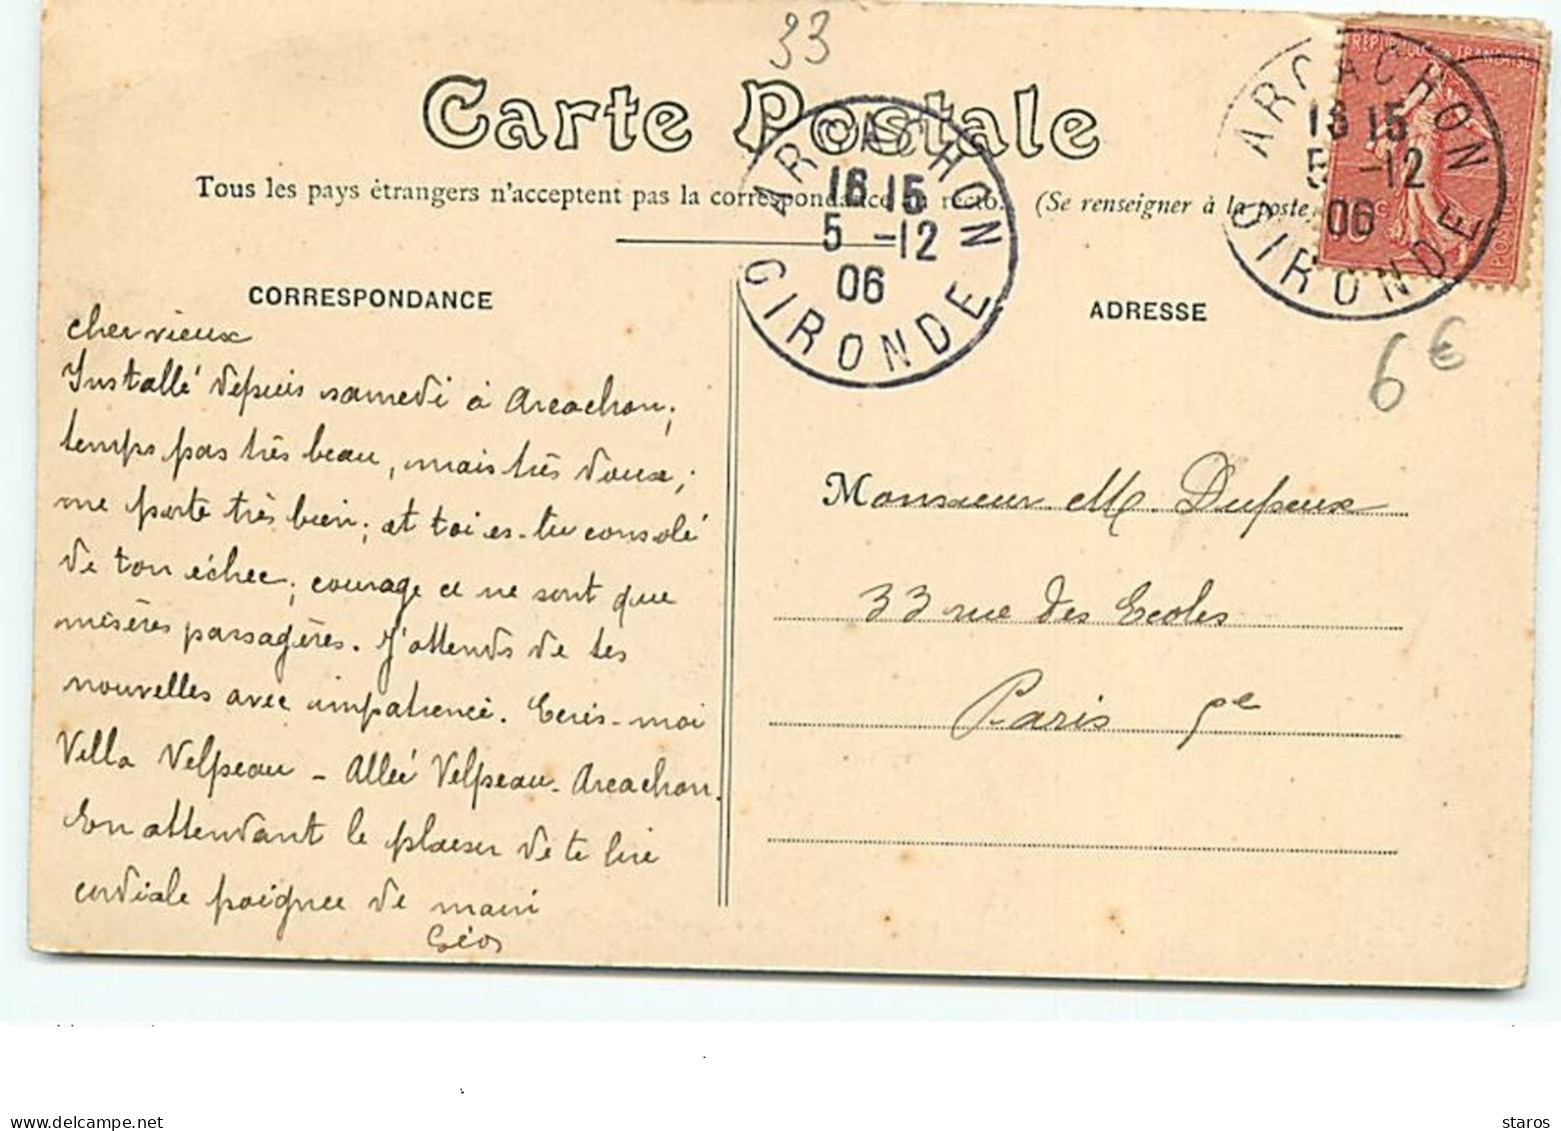 33
Carte Postale
Tous les pays étrangers n'acceptent pas la correspondance au recto. (Se renseigner à la poste
ARCACHON
16 15
5 -12
06
GIRONDE
RÉPUBLIQUE FRANÇAISE
ARCACHON
16 15
5 -12
06
GIRONDE
CORRESPONDANCE
cher vieux
Installé depuis samedi à Arcachon;
temps pas très beau, mais très doux;
me porte très bien; et toi es-tu consolé
de ton échec; courage ce ne sont que
misères passagères. J'attends de tes
nouvelles avec impatience. Ecris-moi
Villa Velpeau - Allée Velpeau. Arcachon.
En attendant le plaisir de te lire
cordiale poignée de main
Géo
ADRESSE
6€
Monsieur M. Dupeux
33 rue des Ecoles
Paris 5e
staros